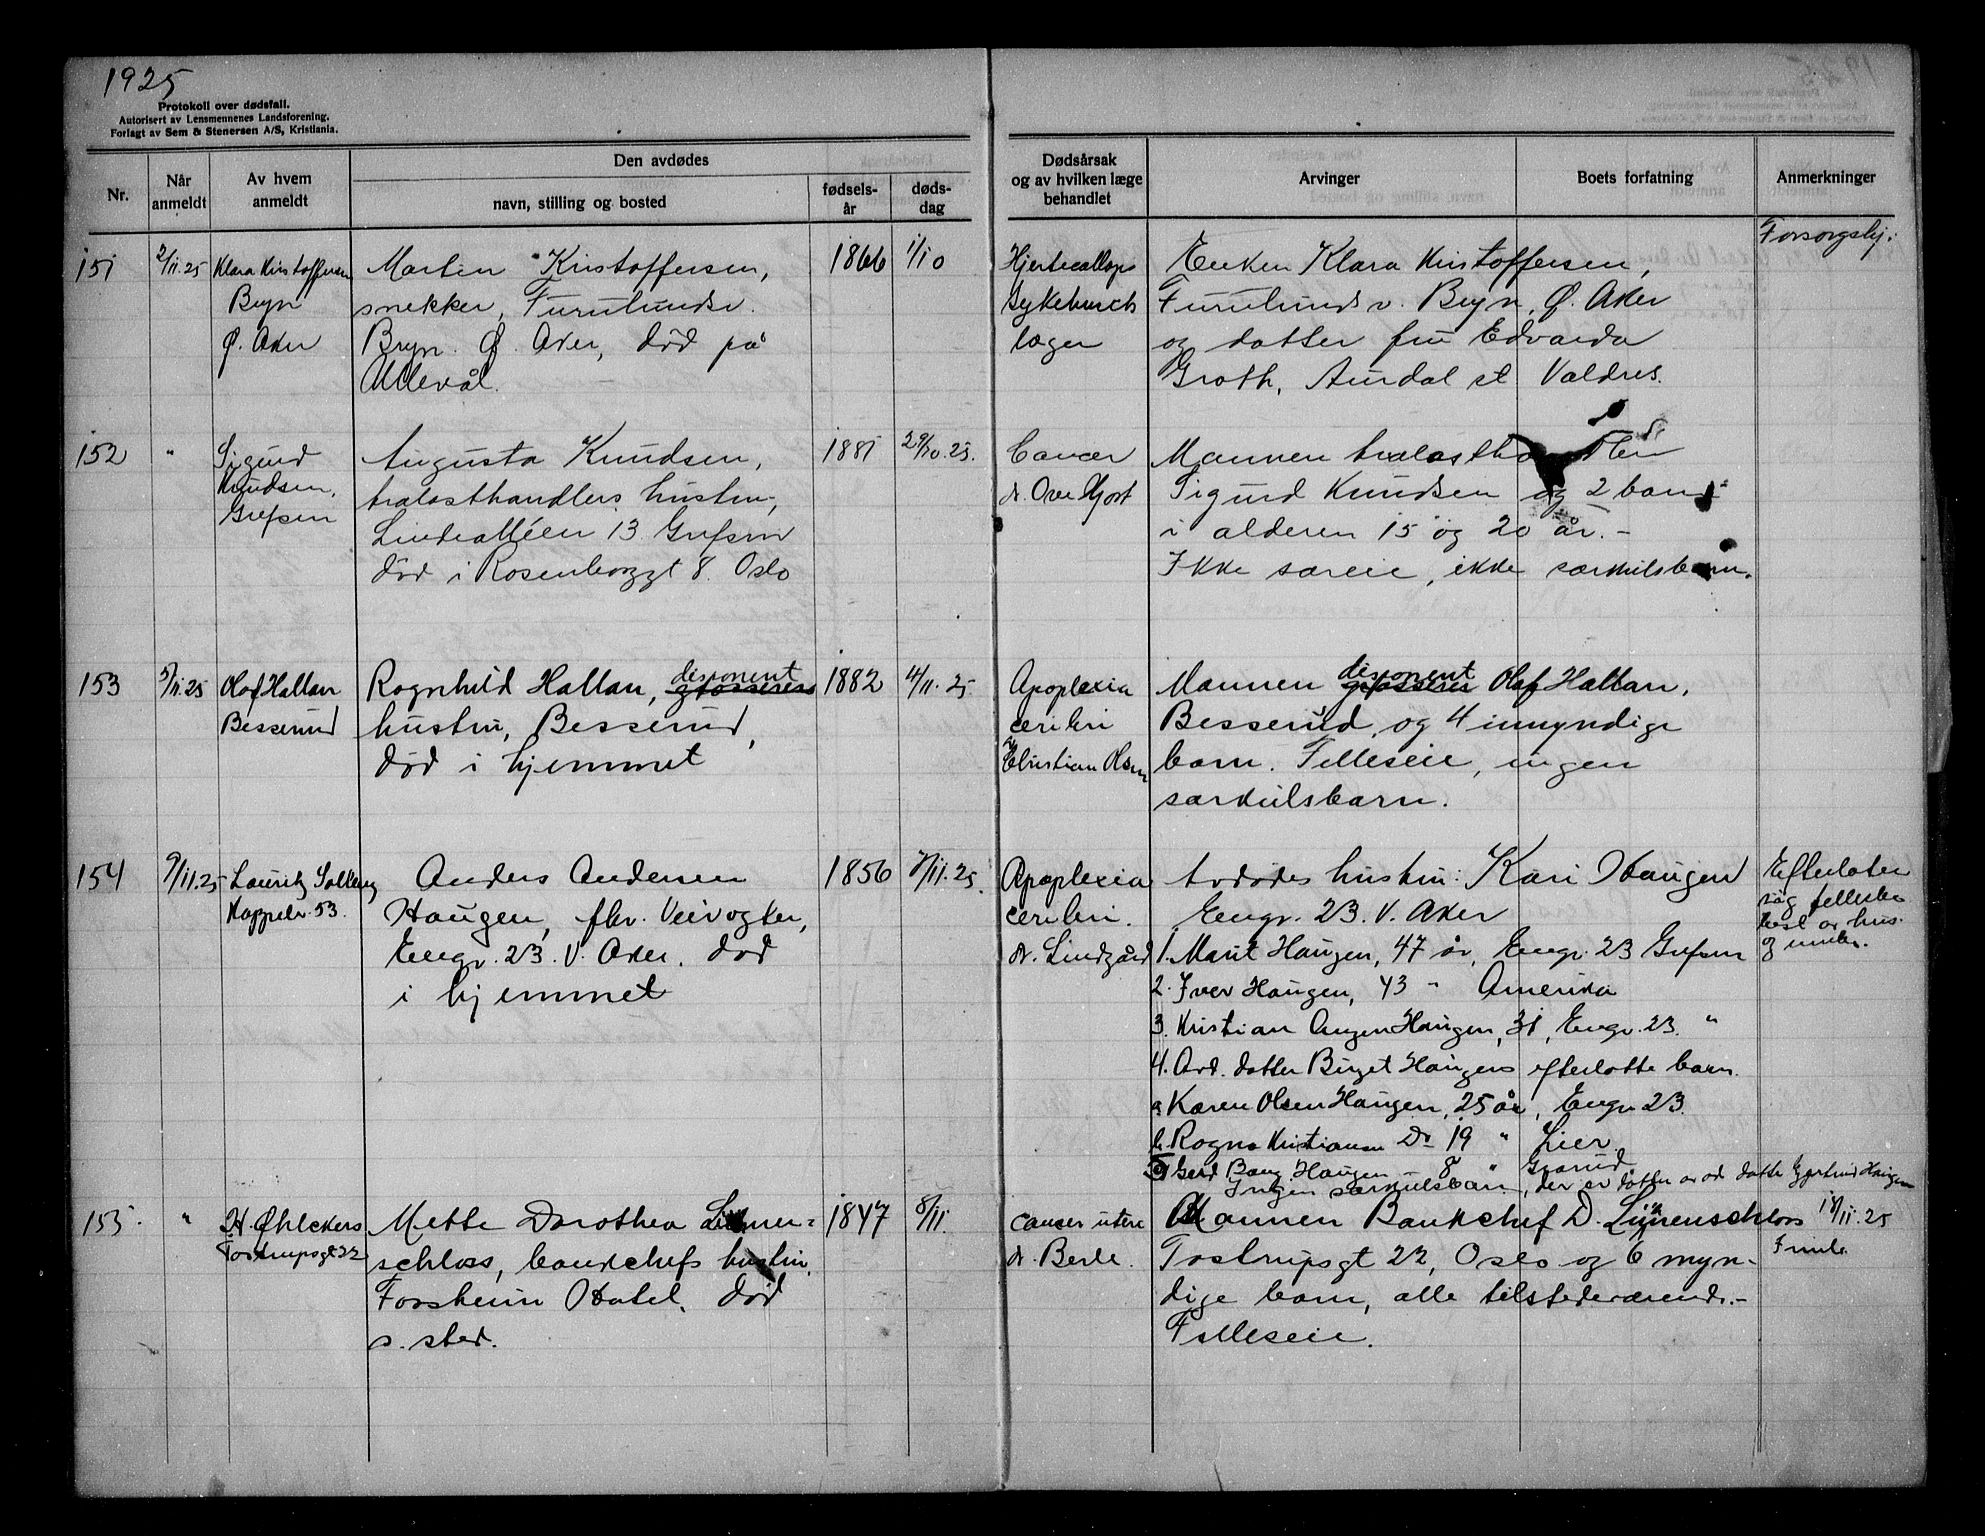 1925
Protokoll over dødsfall.
Autorisert av Lensmennenes Landsforening.
Forlagt av Sem & Stenersen A/S, Kristiania.
Nr.
Når anmeldt
Av hvem anmeldt
Den avdødes
navn, stilling og bosted
fødsels-år
døds-dag
Dødsårsak og av hvilken læge behandlet
Arvinger
Boets forfatning
Anmerkninger
151
2/11.25
Klara Kristoffersen
Bryn
Ø. Aker
Martin Kristoffersen,
snekker, Furulundsv.
Bryn. Ø. Aker, død på
Ullevål.
1866
1/10
Hjertecollaps
Sykehusets
læger
Enken Klara Kristoffersen,
Furulundsv. Bryn, Ø. Aker
og datter fru Edvarda
Groth, Aurdal st. Valdres.
Forsorgshj.
152
"
Sigurd
Knudsen,
Grefsen
Augusta Knudsen,
trælasthandlers hustru,
Lindealléen 13 Grefsen
død i Rosenborggt 8. Oslo
1881
29/10.25.
Cancer
dr. Ove Hjort
Mannen trælasth
Sigurd Knudsen og 2 barn
i alderen 15 og 20 år.-
Ikke særeie, ikke særkulsbarn.
153
5/11.25
Olaf Hallan
Besserud
disponent
Ragnhild Hallan, grosserers
hustru, Besserud,
død i hjemmet
1882
4/11.25
Apoplexia
cerebri
dr. Christian Olsen
disponent
Mannen grosserer Olaf Hallan,
Besserud, og 4 umyndige
barn. Felleseie, ingen
særkulsbarn.
154
9/11.25
Lauritz Solberg
Kappelv. 53.
Anders Andersen
Haugen, fhv. Veivogter,
Engv. 23. V. Aker. død
i hjemmet
1856
7/11.25.
Apoplexia
cerebri.
dr. Lindgård
Avdødes hustru: Kari Haugen
Engv. 23. V. Aker
1. Marit Haugen, 47 år, Engv. 23 Grefsen
2. Iver Haugen, 43 " Amerika
3. Kristian Haugen, 31, Engv. 23. "
4. Avd. datter Birget Haugens efterlatte barn.
a Karen Olsen Haugen, 25 år, Engv. 23.
b. Ragna Kristiansen Do 19 " Lier
c) Gerd Bang Haugen 8 " Grorud
Ingen særkulsbarn, der er datter av avd. datter Gjertrud Haugen
Efterlater
sig felles
best. av hus
og innbo.
155.
"
H. Øhlckers
Tostrupsgt 22
Mette Dorothea
schloss, bankchefs hustru,
Forsheim Hotel, død
s. sted.
1847
8/11.
Cancer uteri
dr. Berle.
Mannen Bankchef D. Lünenschloss
Tostrupsgt 22, Oslo og 6 myn-
dige barn, alle tilstedeværende.-
Felleseie.
18/11.25